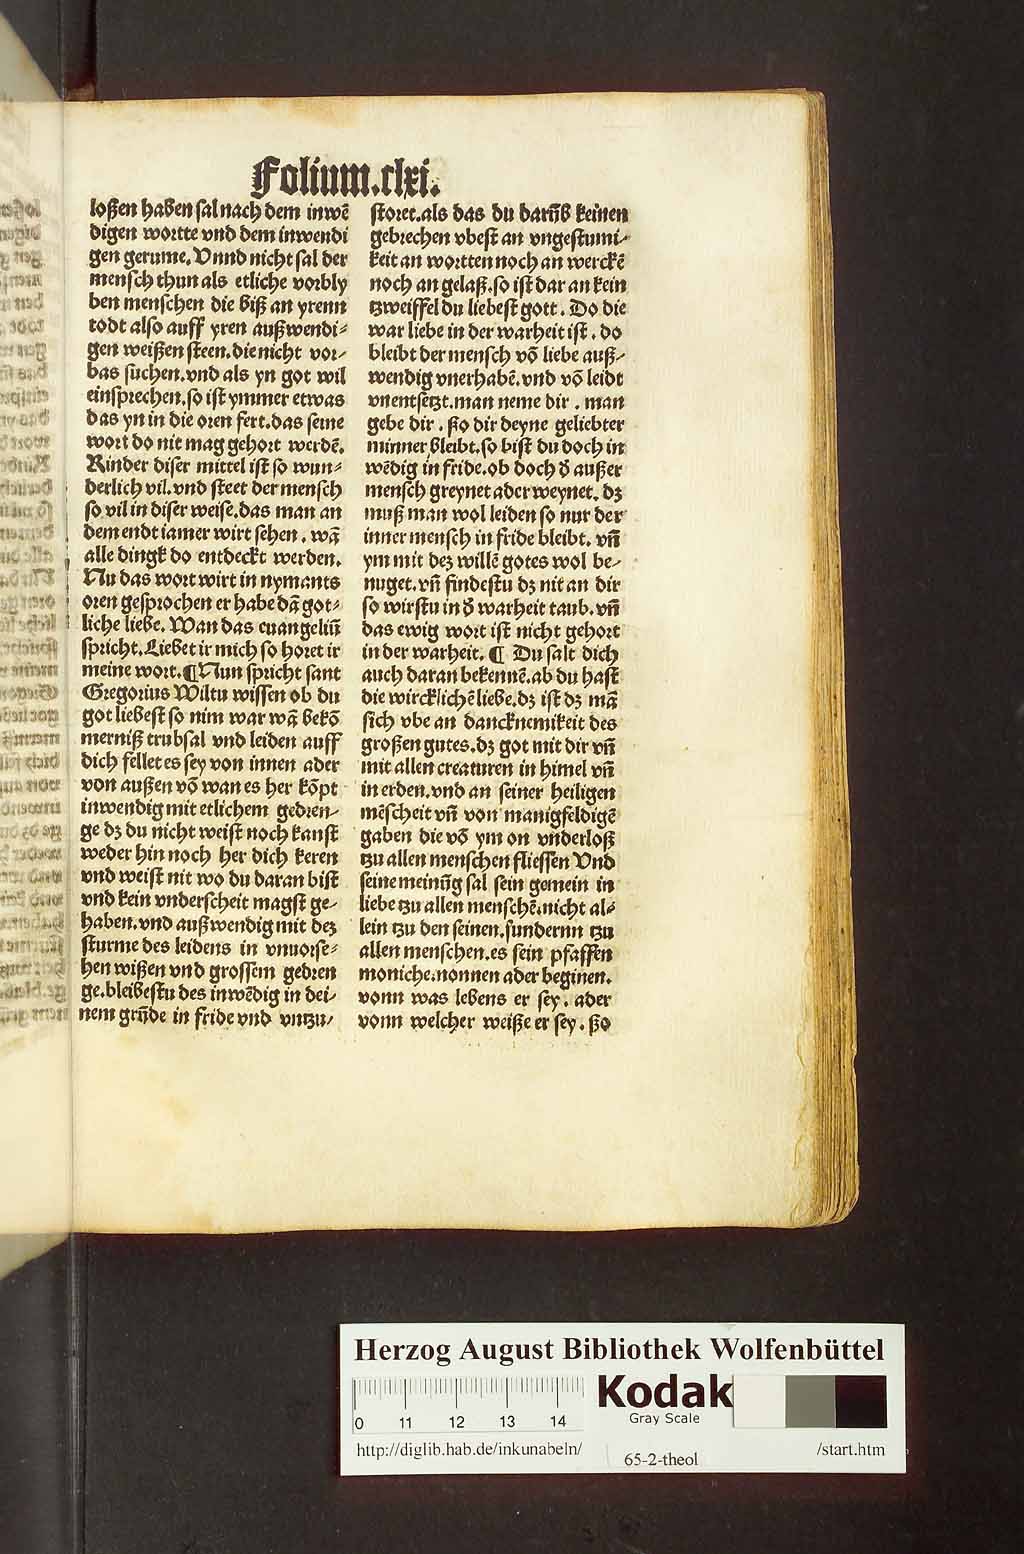 Folium.clxi.
loßen haben sal nach dem inwē
digen wortte vnd dem inwendi
gen gerume. Vnnd nicht sal der
mensch thun als etliche vorbly
ben menschen die biß an yrenn
todt also auff yren außwendi⸗
gen weißen steen.die nicht vor⸗
bas suchen.vnd als yn got wil
einsprechen.so ist ymmer etwas
das yn in die oren fert.das seine
wort do nit mag gehort werdē.
Kinder diser mittel ist so wun⸗
derlich vil.vnd steet der mensch
so vil in diser weise.das man an
dem endt iamer wirt sehen . wā
alle dingk do entdeckt werden.
Nu das wort wirt in nymants
oren gesprochen er habe dā got⸗
liche liebe. Wan das euangeliū
spricht.Liebet ir mich so horet ir
meine wort.¶Nun spricht sant
Gregorius Wiltu wissen ob du
got liebest so nim war wā bekō
merniß trubsal vnd leiden auff
dich fellet es sey von innen ader
von außen vō wan es her kōpt
inwendig mit etlichem gedren⸗
ge dz du nicht weist noch kanst
weder hin noch her dich keren
vnd weist nit wo du daran bist
vnd kein vnderscheit magst ge⸗
haben.vnd außwendig mit dez
sturme des leidens in vnuorse⸗
hen wißen vnd grossem gedren
ge.bleibestu des inwēdig in dei⸗
nem grūde in fride vnd vntzu⸗
storet.als das du darūb keinen
gebrechen vbest an vngestumi⸗
keit an wortten noch an werckē
noch an gelaß.so ist dar an kein
tzweiffel du liebest gott. Do die
war liebe in der warheit ist . do
bleibt der mensch vō liebe auß⸗
wendig vnerhabē.vnd vō leidt
vnentsetzt.man neme dir . man
gebe dir . ßo dir deyne geliebter
minner bleibt.so bist du doch in
wēdig in fride.ob doch ď außer
mensch greynet ader weynet. dz
muß man wol leiden so nur der
inner mensch in fride bleibt. vñ
ym mit dez willē gotes wol be⸗
nuget.vñ findestu dz nit an dir
so wirstu in ď warheit taub.vñ
das ewig wort ist nicht gehort
in der warheit. ¶ Du salt dich
auch daran bekennē.ab du hast
die wircklichē liebe.dz ist dz mā
sich vbe an dancknemikeit des
großen gutes.dz got mit dir vñ
mit allen creaturen in himel vñ
in erden.vnd an seiner heiligen
mēscheit vñ von manigfeldigē
gaben die vō ym on vnderloß
tzu allen menschen fliessen Vnd
seine meinūg sal sein gemein in
liebe tzu allen menschē.nicht al⸗
lein tzu den seinen.sundernn tzu
allen menschen.es sein pfaffen
moniche.nonnen ader beginen.
vonn was lebens er sey. ader
vonn welcher weiße er sey . ßo
Herzog August Bibliothek Wolfenbüttel
0 11 12 13 14
Kodak
Gray Scale
http://diglib.hab.de/inkunabeln/
65-2-theol
/start.htm